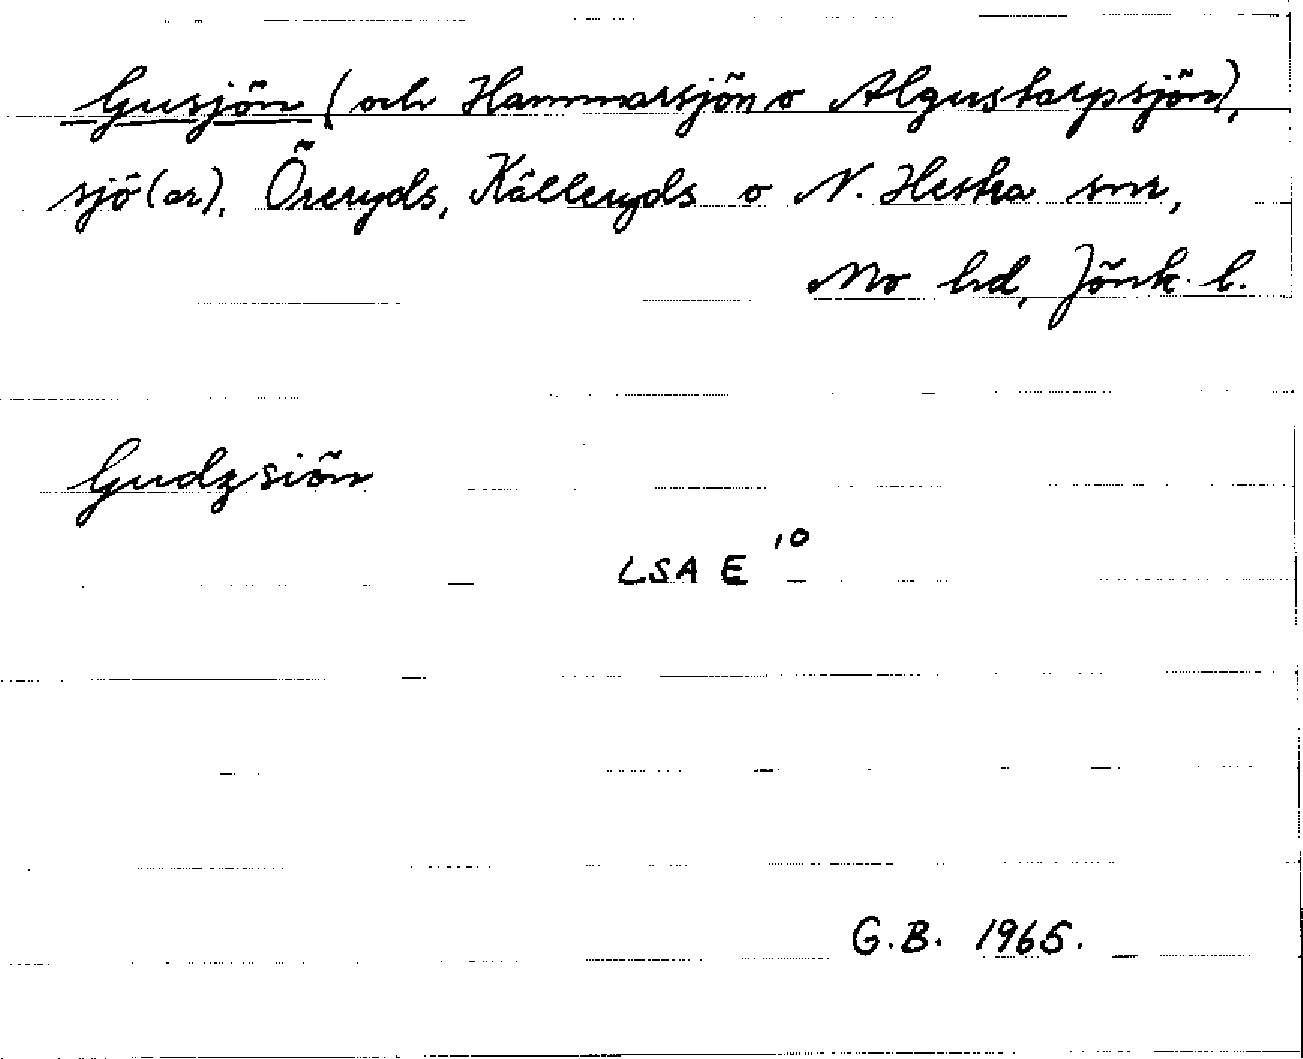 Gusjön (och Hammarsjön o Algustarpsjön),
sjö(ar), Öreryds, Källeryds o N. Hestra snr,
Mo hd, Jönk. l.
Gudzsiön
LSA E 10
G.B. 1965.